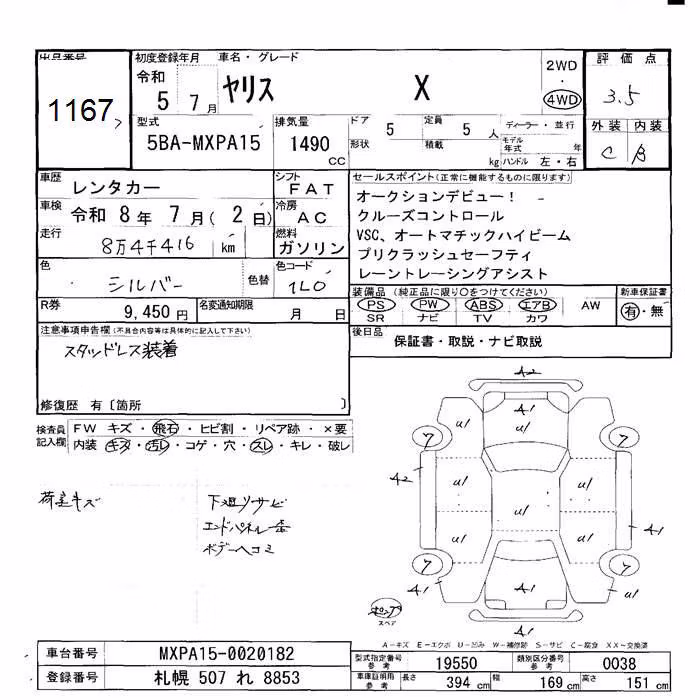 出品番号
1167
初度登録年月
令和
5 7月
車名・グレード
ヤリス X
2WD
・
4WD
評価点
3.5
外装 内装
C B
型式
5BA-MXPA15
排気量
1490 CC
ドア 5
定員 5 人
形状
積載 kg
ディーラー・並行
モデル年式 年
ハンドル 左・右
車歴
レンタカー
シフト
FAT
車検
令和 8年 7月( 2日)
冷房
AC
走行
8万4千416 km
燃料
ガソリン
色
シルバー
色替
色コード
1L0
R券
9,450円
名変通知期限
月 日
セールスポイント(正常に機能するものに限ります)
オークションデビュー!
クルーズコントロール
VSC、オートマチックハイビーム
プリクラッシュセーフティ
レーントレーシングアシスト
装備品 (純正品に限り○をつけてください)
PS PW ABS エアB AW
SR ナビ TV カワ
新車保証書
有・無
後日品
保証書・取説・ナビ取説
注意事項申告欄(不具合内容等は具体的に記入して下さい)
スタッドレス装着
修復歴 有〔箇所 〕
検査員記入欄
FW キズ・飛石・ヒビ割・リペア跡・×要
内装・キズ・汚レ・コゲ・穴・スレ・キレ・破レ
荷室キズ
下廻りサビ
エンドパネル歪
ボデーヘコミ
A2
A1
U1 U1
7 7
U1
A2 U1 U1 U1
A1
U1 U1
7 7
A1 A1 A1
A1
ポンプ
スペア
A-キズ E-エクボ U-凹み W-補修跡 S-サビ C-腐食 XX-交換済
車台番号
MXPA15-0020182
登録番号
札幌 507 れ 8853
型式指定番号
参考
19550
類別区分番号
参考
0038
車庫証明用
参考
長さ 394 cm
幅 169 cm
高さ 151 cm